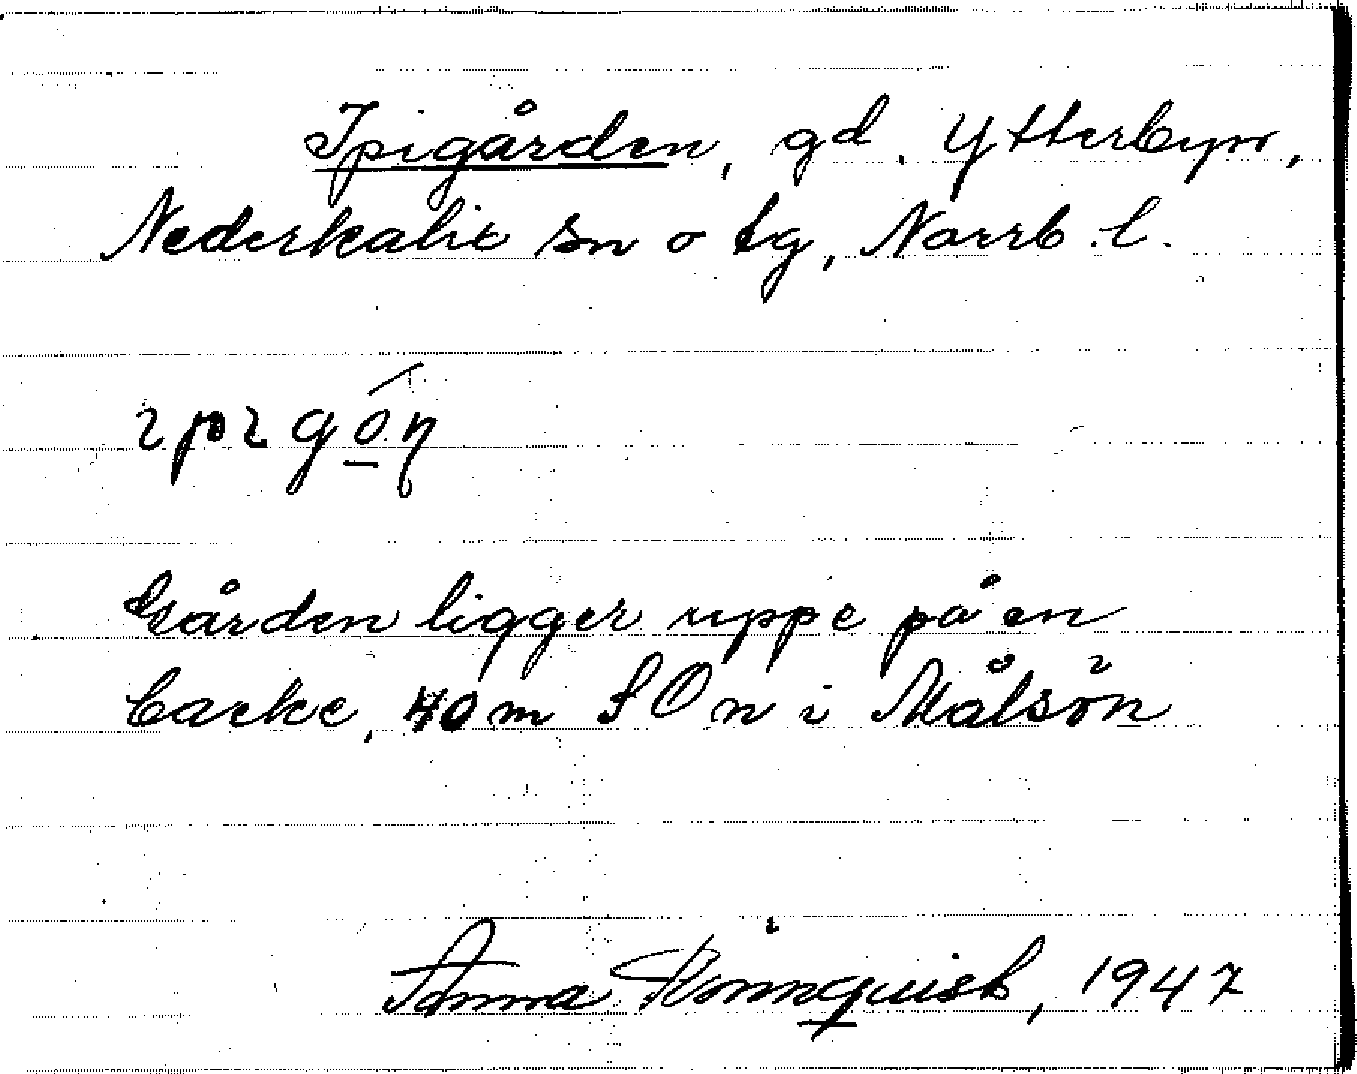 Ipigården, gd, Ytterbyn,
Nederkalix sn o tg, Norrb. l.
ɩpɩgô̱ṇ
Gården ligger uppe på en
backe, 40 m SO n i Målsön
Anna Rönnquist, 1947